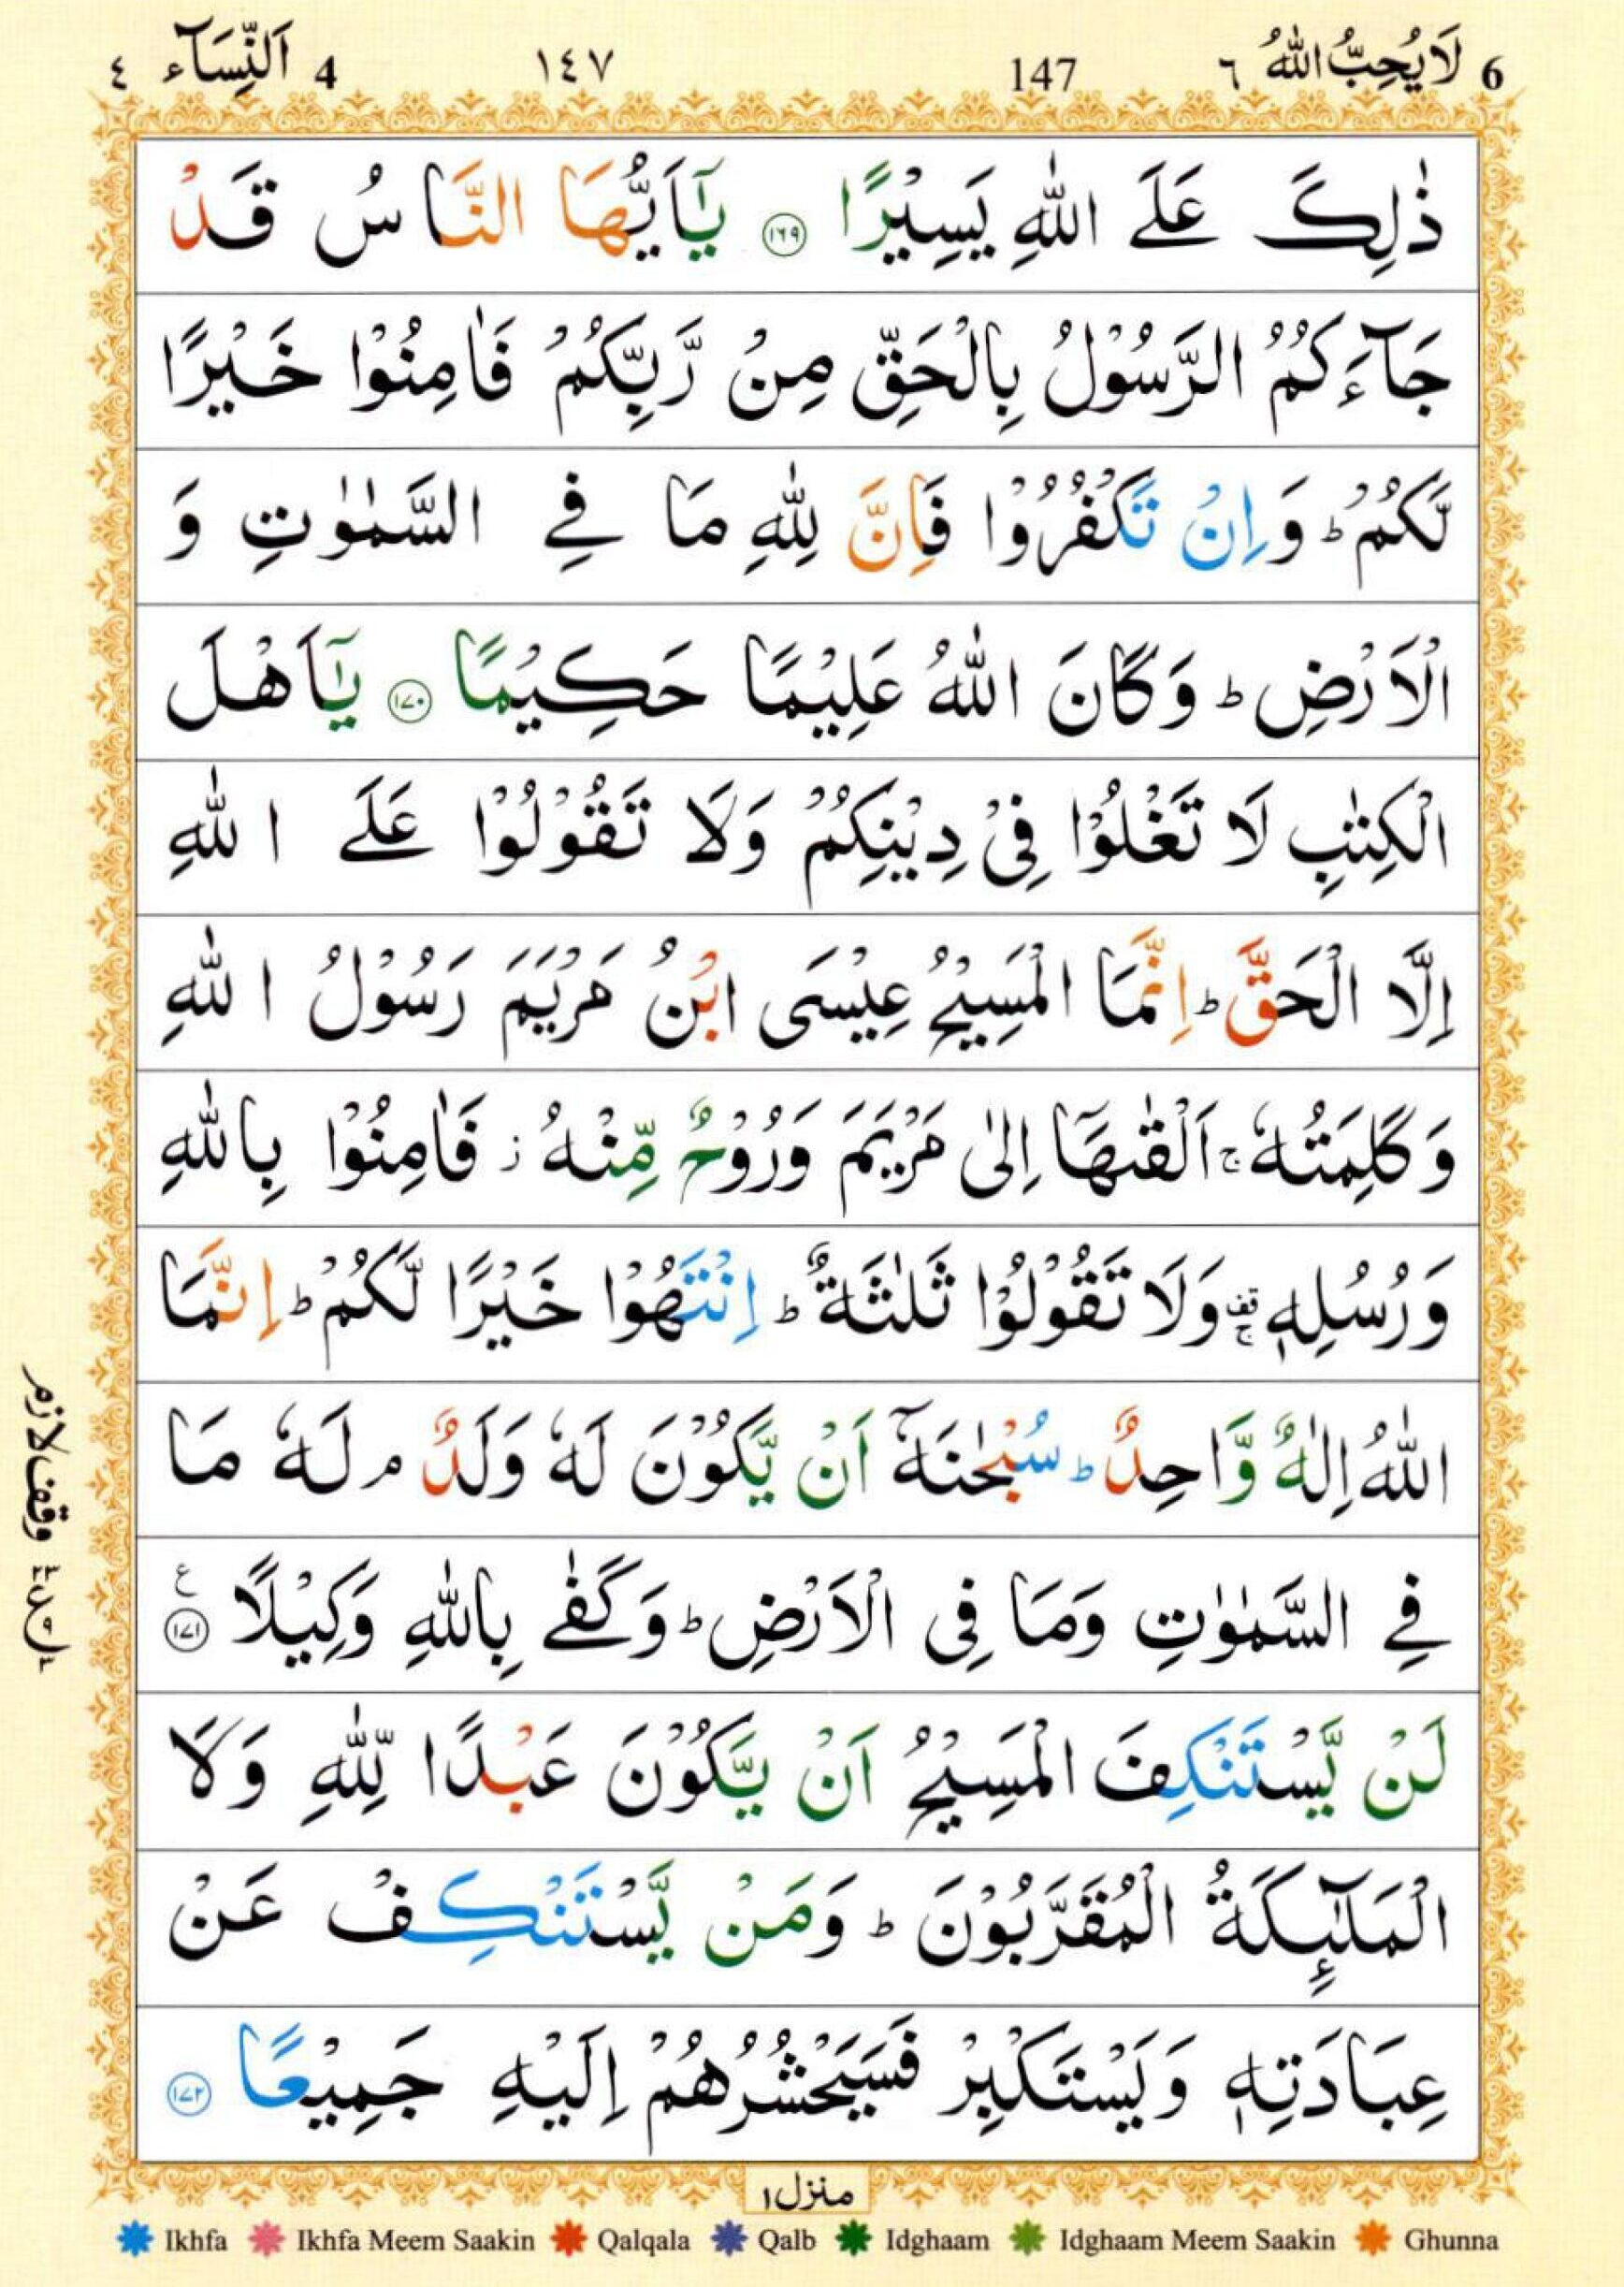 6 لَا يُحِبُّ اللّٰهُ ٦ 147 ١٤٧ 4 اَلنِّسَآء ٤
ذٰلِكَ عَلَے اللّٰهِ يَسِيْرًا ١٦٩ يٰۤاَيُّهَا النَّاسُ قَدْ
جَآءَكُمُ الرَّسُوْلُ بِالْحَقِّ مِنْ رَّبِّكُمْ فَاٰمِنُوْا خَيْرًا
لَّكُمْ ؕ وَاِنْ تَكْفُرُوْا فَاِنَّ لِلّٰهِ مَا فِے السَّمٰوٰتِ وَ
الْاَرْضِ ؕ وَكَانَ اللّٰهُ عَلِيْمًا حَكِيْمًا ١٧٠ يٰۤاَهْلَ
الْكِتٰبِ لَا تَغْلُوْا فِيْ دِيْنِكُمْ وَلَا تَقُوْلُوْا عَلَے اللّٰهِ
اِلَّا الْحَقَّ ؕ اِنَّمَا الْمَسِيْحُ عِيْسَى ابْنُ مَرْيَمَ رَسُوْلُ اللّٰهِ
وَكَلِمَتُهٗ ۚ اَلْقٰىهَاۤ اِلٰى مَرْيَمَ وَرُوْحٌ مِّنْهُ ؗ فَاٰمِنُوْا بِاللّٰهِ
وَرُسُلِهٖ قف ۚ وَلَا تَقُوْلُوْا ثَلٰثَةٌ ؕ اِنْتَهُوْا خَيْرًا لَّكُمْ ؕ اِنَّمَا
اللّٰهُ اِلٰهٌ وَّاحِدٌ ؕ سُبْحٰنَهٗۤ اَنْ يَّكُوْنَ لَهٗ وَلَدٌ ۘ لَهٗ مَا
فِے السَّمٰوٰتِ وَمَا فِى الْاَرْضِ ؕ وَكَفٰے بِاللّٰهِ وَكِيْلًا ع ١٧١
لَنْ يَّسْتَنْكِفَ الْمَسِيْحُ اَنْ يَّكُوْنَ عَبْدًا لِّلّٰهِ وَلَا
الْمَلٰٓئِكَةُ الْمُقَرَّبُوْنَ ؕ وَمَنْ يَّسْتَنْكِفْ عَنْ
عِبَادَتِهٖ وَيَسْتَكْبِرْ فَسَيَحْشُرُهُمْ اِلَيْهِ جَمِيْعًا ١٧٢
وقف لازم
منزل ١
Ikhfa Ikhfa Meem Saakin Qalqala Qalb Idghaam Idghaam Meem Saakin Ghunna